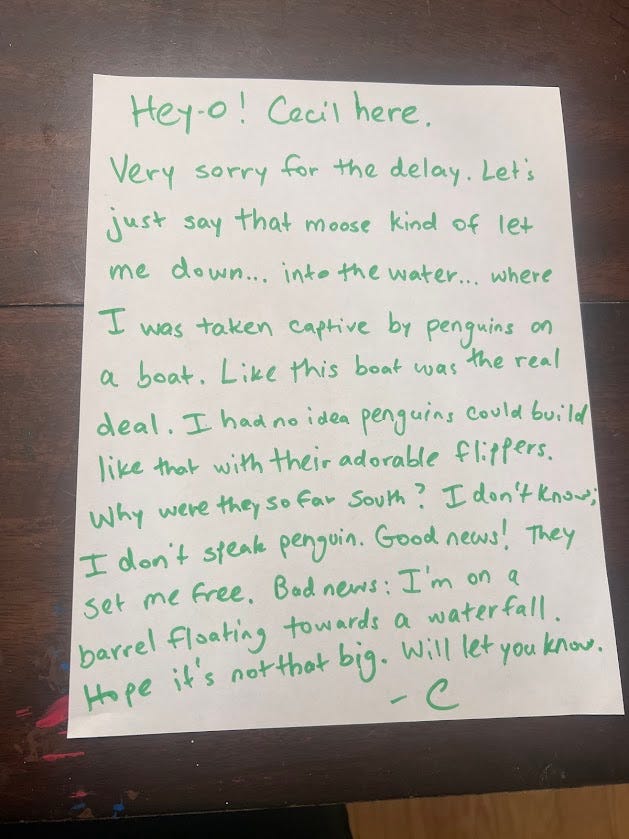 Hey-o! Cecil here.
Very sorry for the delay. Let's
just say that moose kind of let
me down... into the water... where
I was taken captive by penguins on
a boat. Like this boat was the real
deal. I had no idea penguins could build
like that with their adorable flippers.
Why were they so far South? I don't know;
I don't speak penguin. Good news! They
set me free. Bad news: I'm on a
barrel floating towards a waterfall.
Hope it's not that big. Will let you know.
- C